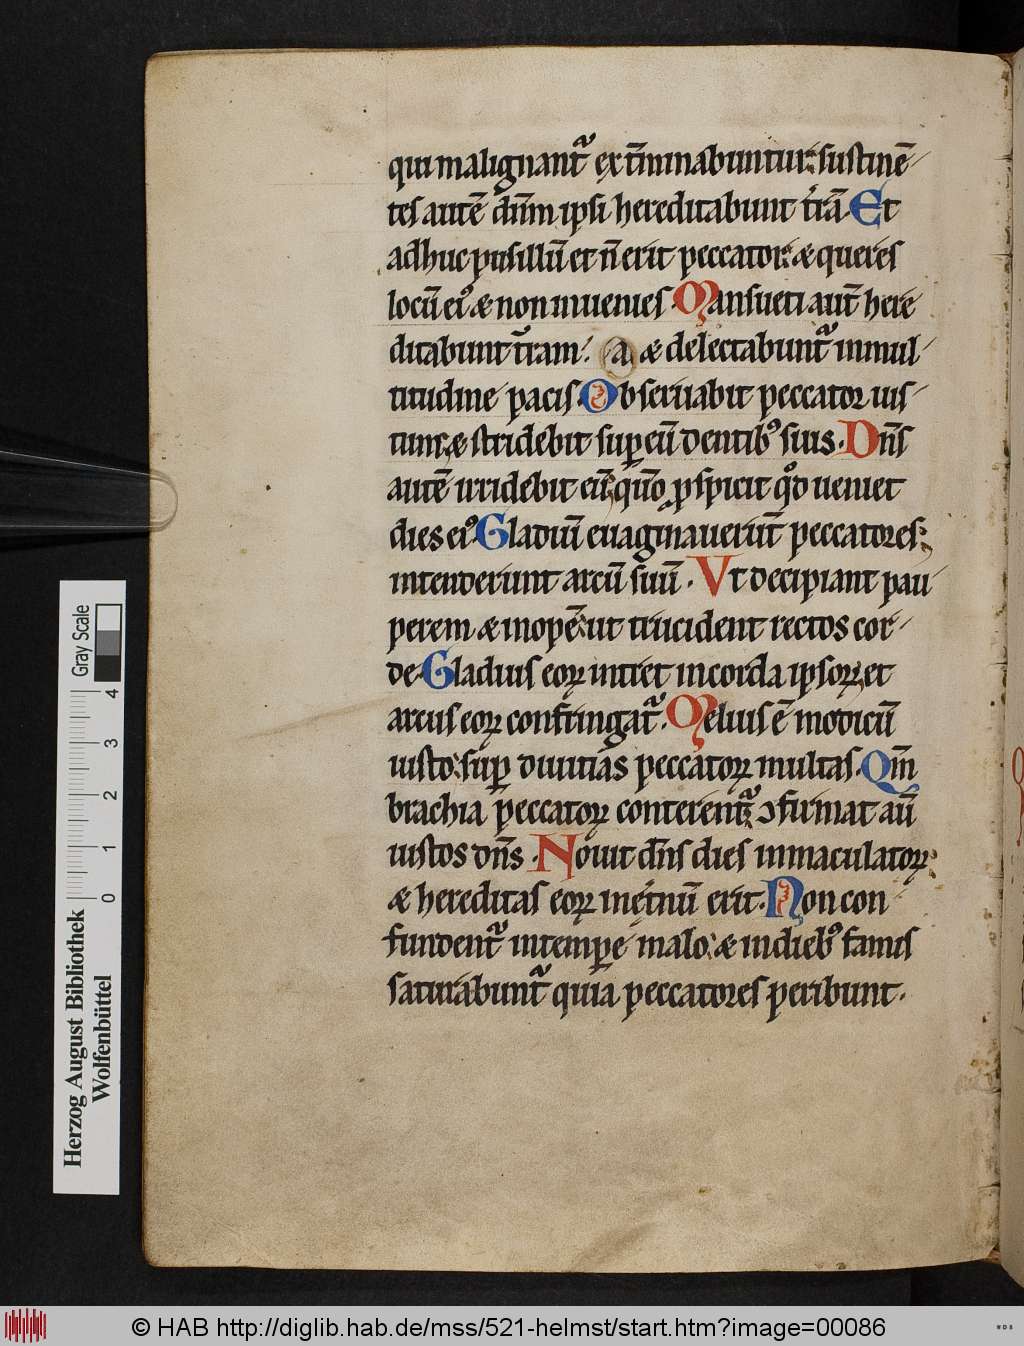 qui malignant᷑ ext̄minabuntur: sustinē/
tes autē dn̄m ipsi hereditabunt t̉rā. Et
adhuc pusillū et n̄ erit peccator: & queres
locū eiꝰ & non inuenies. Mansueti aut̄ here
ditabunt t̄ram: & delectabunt᷑ in mul/
titudine pacis. Obseruabit peccator ius/
tum: & stridebit suꝑ eū dentibꝰ suis. Dn̄s
autē irridebit eū: qm̄o ꝓspicit qd̊ ueniet
dies eiꝰ. Gladiū euaginauerūt peccatores:
intenderunt arcū suū. Vt decipiant pau/
perem & inopē: ut trucident rectos cor/
de. Gladius eoꝝ intret in corda ipsoꝝ: et
arcus eoꝝ confringat᷑. Melius ē modicū
iusto: suꝑ diuitias peccatoꝝ multas. Qm̄
brachia peccatoꝝ conterent᷑: ↄfirmat aū
iustos dn̄s. Nouit dn̄s dies inmaculatoꝝ:
& hereditas eoꝝ inet̉nū erit. Non con/
fundent᷑ in temꝑe malo: & in diebꝰ famis
saturabunt᷑ quia peccatores peribunt.
Herzog August Bibliothek
Wolfenbüttel
0 1 2 3 4
Gray Scale
© HAB http://diglib.hab.de/mss/521-helmst/start.htm?image=00086
WDB